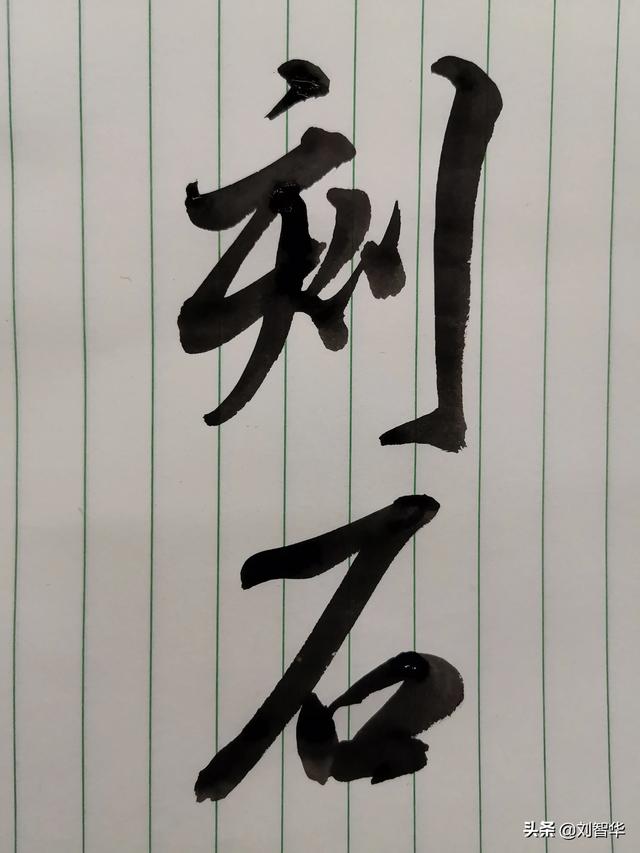 刻石
头条 @刘智华